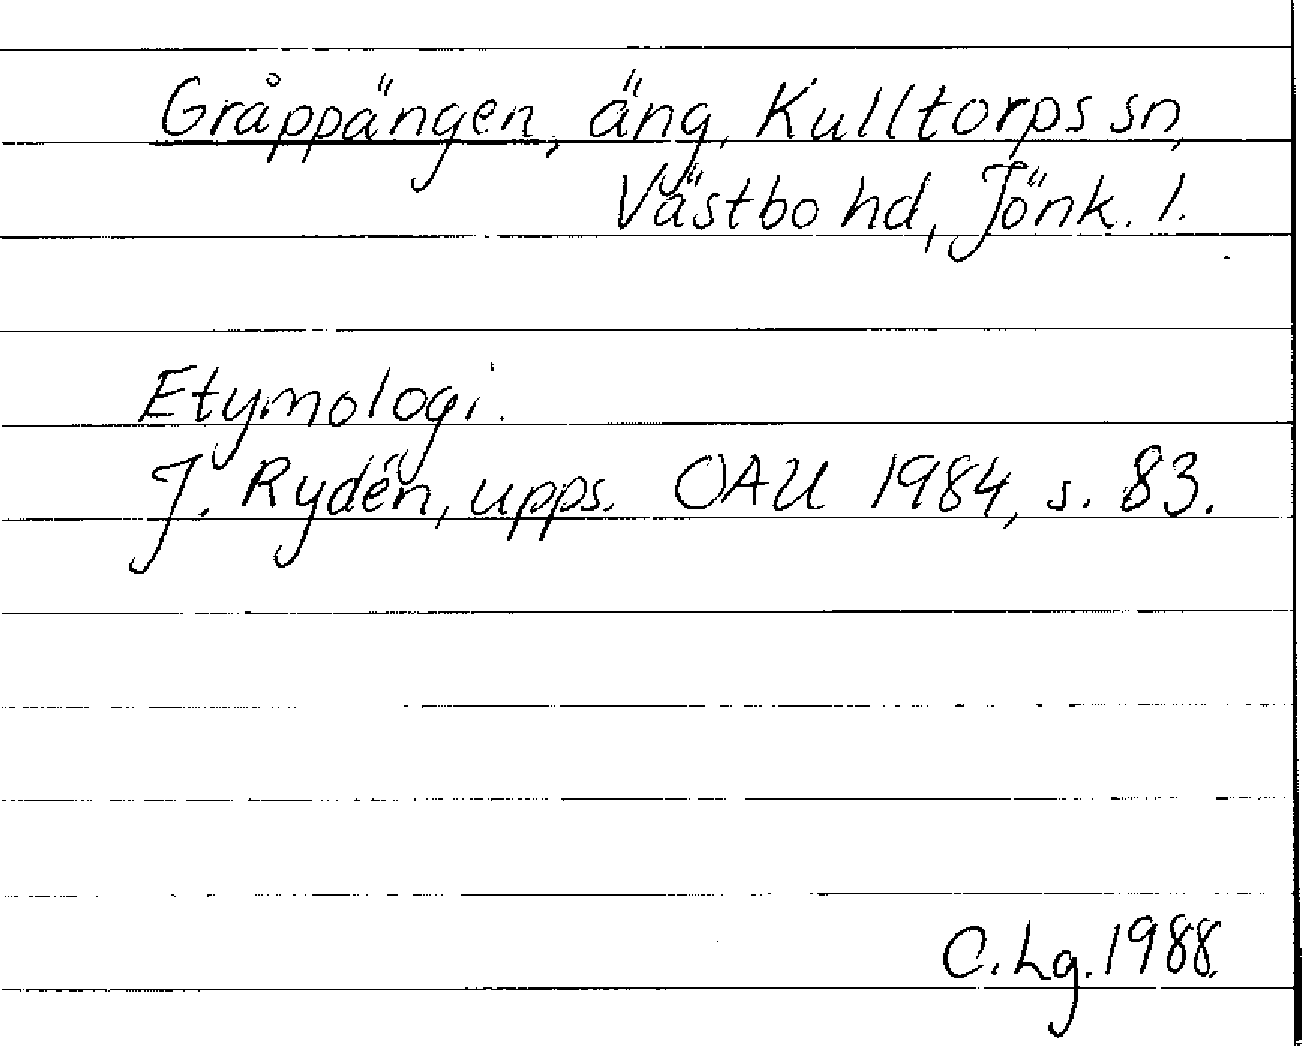 Gråppängen, äng, Kulltorps sn,
Västbo hd, Jönk. l.
Etymologi.
J. Rydén, upps. OAU 1984, s. 83.
C. Lg. 1988.